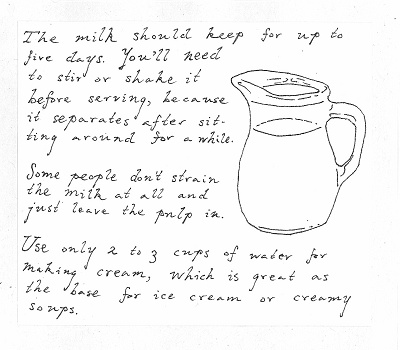 The milk should keep for up to
five days. You'll need
to stir or shake it
before serving, because
it separates after sit-
ting around for a while.
Some people don't strain
the milk at all and
just leave the pulp in.
Use only 2 to 3 cups of water for
making cream, which is great as
the base for ice cream or creamy
soups.